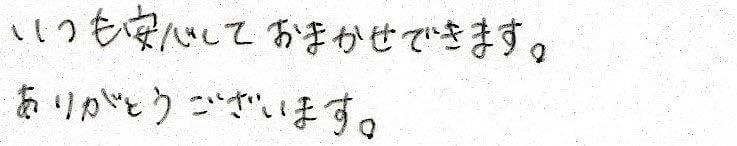 いつも安心しておまかせできます。
ありがとうございます。